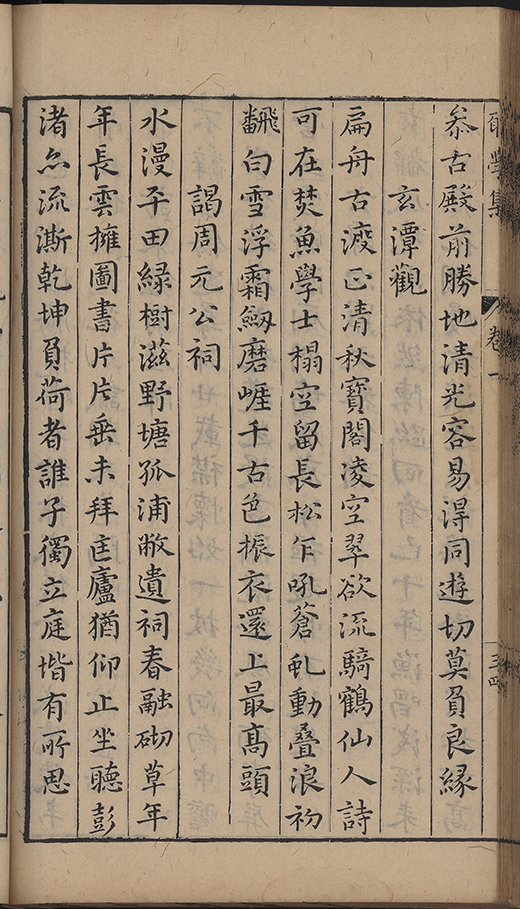 卷一
三四
叅古殿前勝地清光容易得同遊切莫負良縁
玄潭觀
扁舟古渡正清秋寶閣凌空翠欲流騎鶴仙人詩
可在焚魚學士榻空留長松乍吼蒼虬動叠浪初
飜白雪浮霜劔磨崕千古色振衣還上最髙頭
謁周元公祠
水漫平田緑樹滋野塘孤浦敝遺祠春融砌草年
年長雲擁圖書片片垂未拜匡廬猶仰止坐聽彭
渚亦流澌乾坤負荷者誰子獨立庭堦有所思